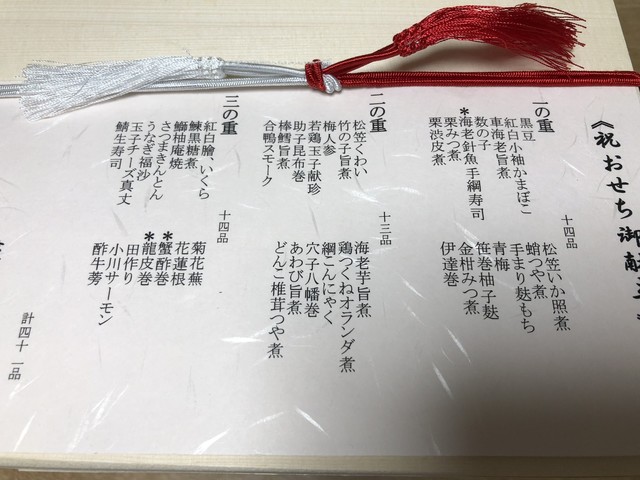 《祝 おせち 御献立
一の重 十四品
黒豆
紅白小袖かまぼこ
車海老旨煮
数の子
*海老針魚手綱寿司
栗みつ煮
栗渋皮煮
松笠いか照煮
蛸つや煮
手まり麸もち
青梅
笹巻柚子麸
金柑みつ煮
伊達巻
二の重 十三品
松笠くわい
竹の子旨煮
梅人参
若鶏玉子献珍
助子昆布巻
棒鱈旨煮
合鴨スモーク
海老芋旨煮
鶏つくねオランダ煮
綱こんにゃく
穴子八幡巻
あわび旨煮
どんこ椎茸つや煮
三の重 十四品
紅白膾、いくら
鰊黒糖煮
鰤柚庵焼
さつまきんとん
うなぎ福沙
玉子チーズ真丈
鯖生寿司
菊花蕪
花蓮根
*蟹酢巻
*龍皮巻
田作り
小川サーモン
酢牛蒡
計四十一品